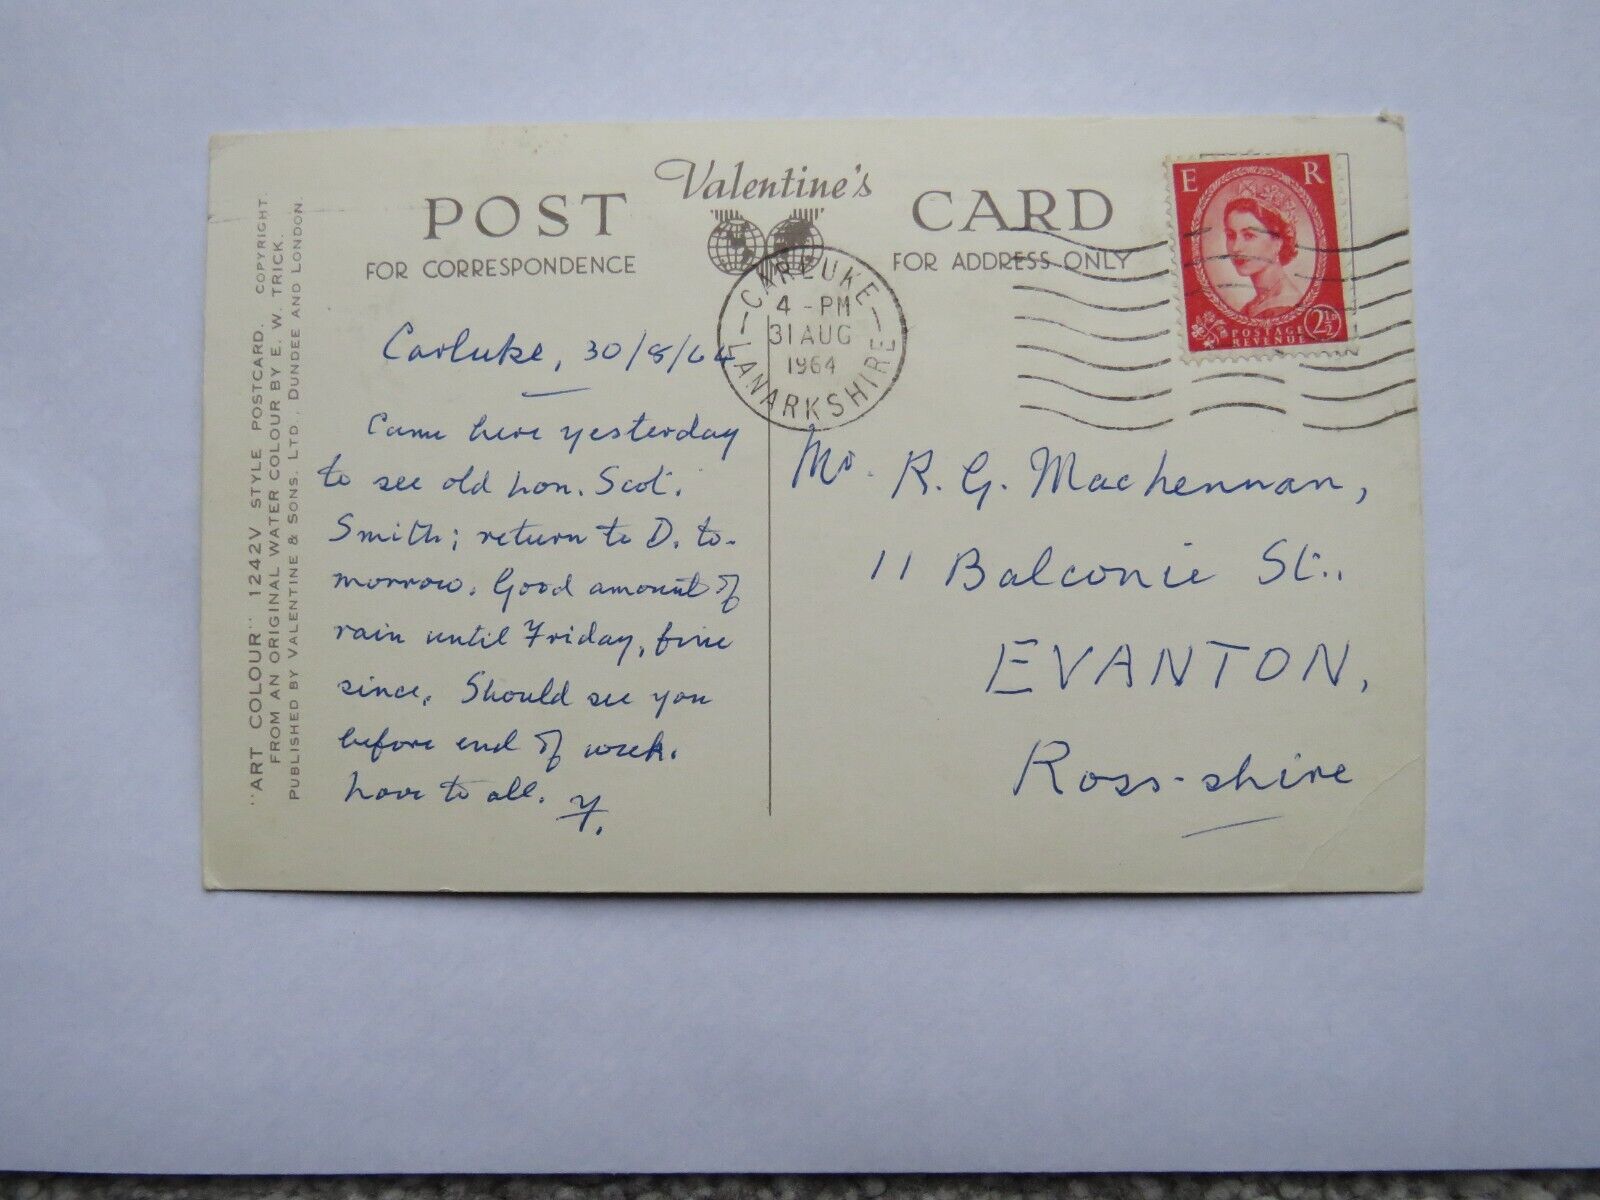 "ART COLOUR" 1242V STYLE POSTCARD. COPYRIGHT.
FROM AN ORIGINAL WATER COLOUR BY E. W. TRICK.
PUBLISHED BY VALENTINE & SONS, LTD., DUNDEE AND LONDON.
POST Valentine's CARD
FOR CORRESPONDENCE
FOR ADDRESS ONLY
E R
POSTAGE
REVENUE
2½D
CARLUKE
4 - PM
31 AUG
1964
LANARKSHIRE
Carluke, 30/8/64
Came here yesterday
to see old hon. Scot.
Smith; return to D. to-
morrow. Good amount of
rain until Friday, fine
since. Should see you
before end of week.
Love to all. Y.
Mr. R. G. MacLennan,
11 Balconie St.,
EVANTON,
Ross-shire